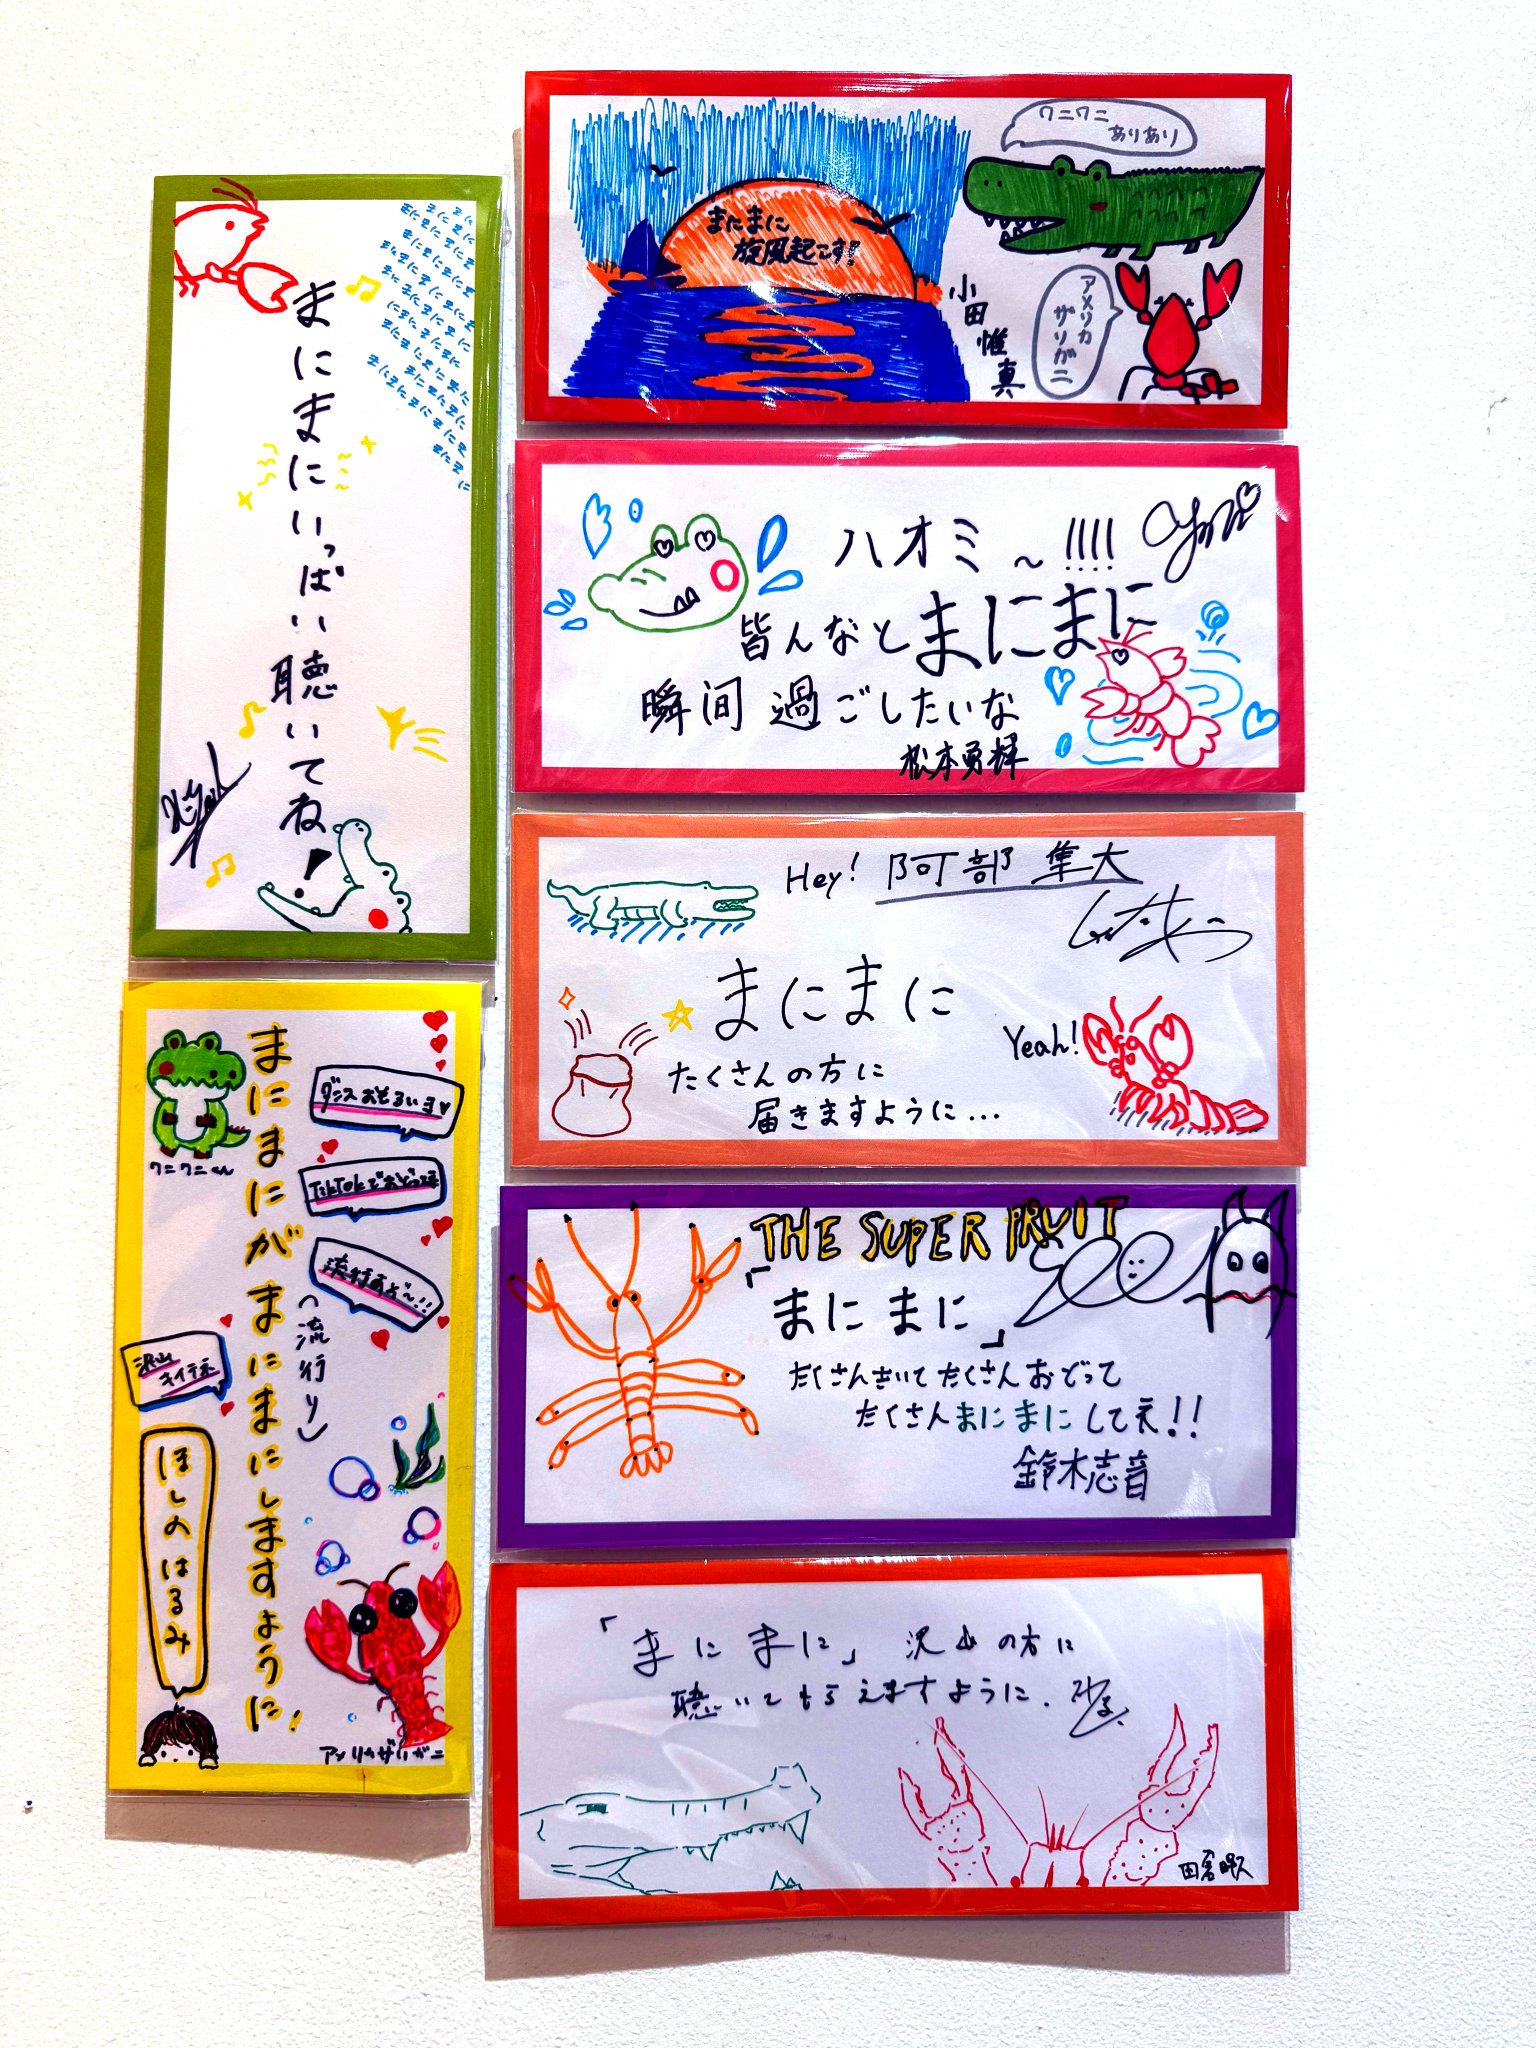 まにまにいっぱい聴いてね!
まにまにがまにまにしますように!
(流行り)
ダンスおもろいヨ
TikTokでおどってネ
流行るぞ〜!!
沢山
キイテネ
ワニワニくん
ほしのはるみ
アメリカザリガニ
まにまに
旋風起こす!
ワニワニ
ありあり
アメリカ
ザリガニ
小田惟真
ハオミ〜!!!!
皆んなとまにまに
瞬间過ごしたいな
松本勇輝
Hey! 阿部隼大
まにまに
たくさんの方に
届きますように...
Yeah!
THE SUPER FRUIT
「まにまに」
たくさんきいてたくさんおどって
たくさんまにまにしてネ!!
鈴木志音
「まにまに」沢山の方に
聴いてもらえますように.
田倉暉久